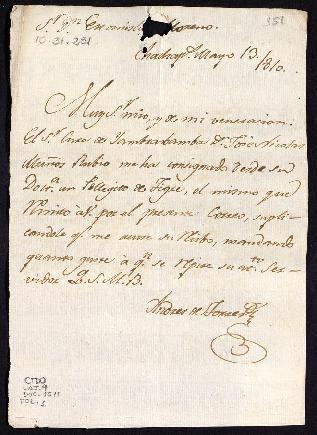 Sr. Dn. Geronimo Moreno.
151
10-31-251
Mayo 13/810.
Muy Sr. mio, y de mi veneracion.
El Sr. Cura de Tambarbamba Dn. José Nicolas
Muños Rubio me ha consignado desde su
Doctra. un Pellejito de Tigre, el mismo que
remito á V. por el presente Correo, supli-
candole qe. me avise su recibo, mandando
quanto guste á qn. se repite su atto. Ser-
vidor Q. S. M. B.
Andres de
CTDO
LAT. 9
DOC. 1511
FOL. 1